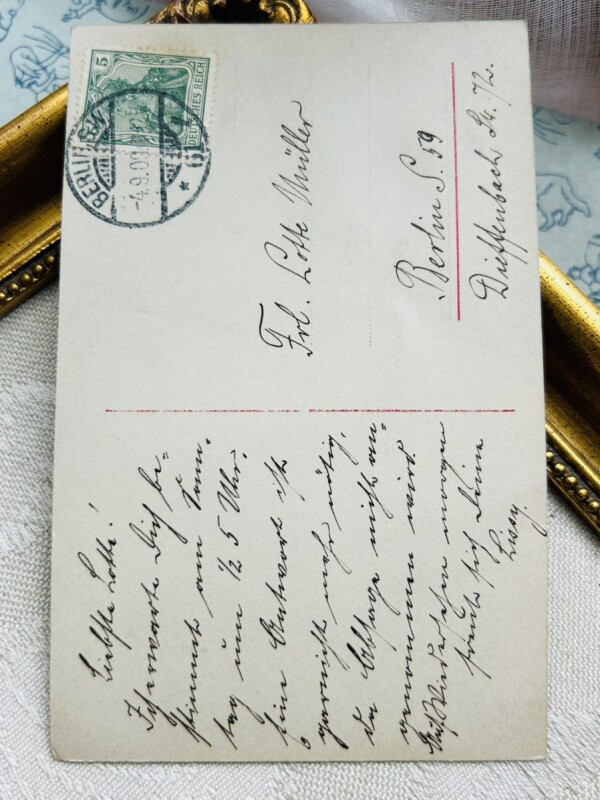 5
DEUTSCHES REICH
BERLIN S.W.
-4.9.09.
* 61
Frl. Lotte Müller
Berlin S. 59
Dieffenbach Str. 72.
Liebste Lotte!
Ich erwarte Dich be=
stimmt am Sonn=
tag um 1/2 5 Uhr.
Eine Antwort ist
garnicht mehr nötig,
da Absage nicht an=
genommen wird.
Auf Wiedersehen morgen
freut sich Deine
Lissy.